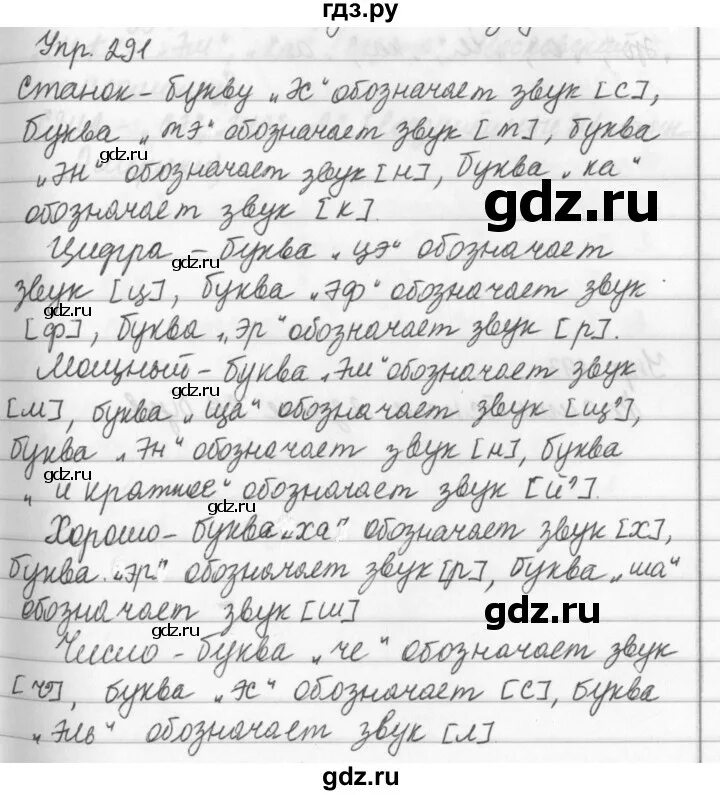 гдз.ру
Упр. 291
Станок – букву „Эс“ обозначает звук [с],
буква „тэ“ обозначает звук [т], буква
gdz.ru
„Эн“ обозначает звук [н], буква „ка“
gdz.ru
обозначает звук [к].
Цифра – буква „цэ“ обозначает
gdz.ru
звук [ц], буква „эф“ обозначает звук
gdz.ru
[ф], буква „эр“ обозначает звук [р].
Мощный – буква „Эм“ обозначает звук
gdz.ru
[м], буква „ща“ обозначает звук [щ'],
буква „Эн“ обозначает звук [н], буква
gdz.ru
„и краткое“ обозначает звук [й'].
gdz.ru
Хорошо – буква „ха“ обозначает звук [х],
буква „эр“ обозначает звук [р], буква „ша“
gdz.ru
обозначает звук [ш]
gdz.ru
Число – буква „че“ обозначает звук
[ч'], буква „Эс“ обозначает [с], буква
gdz.ru
„Эль“ обозначает звук [л]
gdz.ru